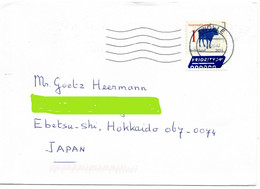 1
PRIORITY
Mr. Goetz Heermann
Ebetsu-shi, Hokkaido 067-0074
JAPAN